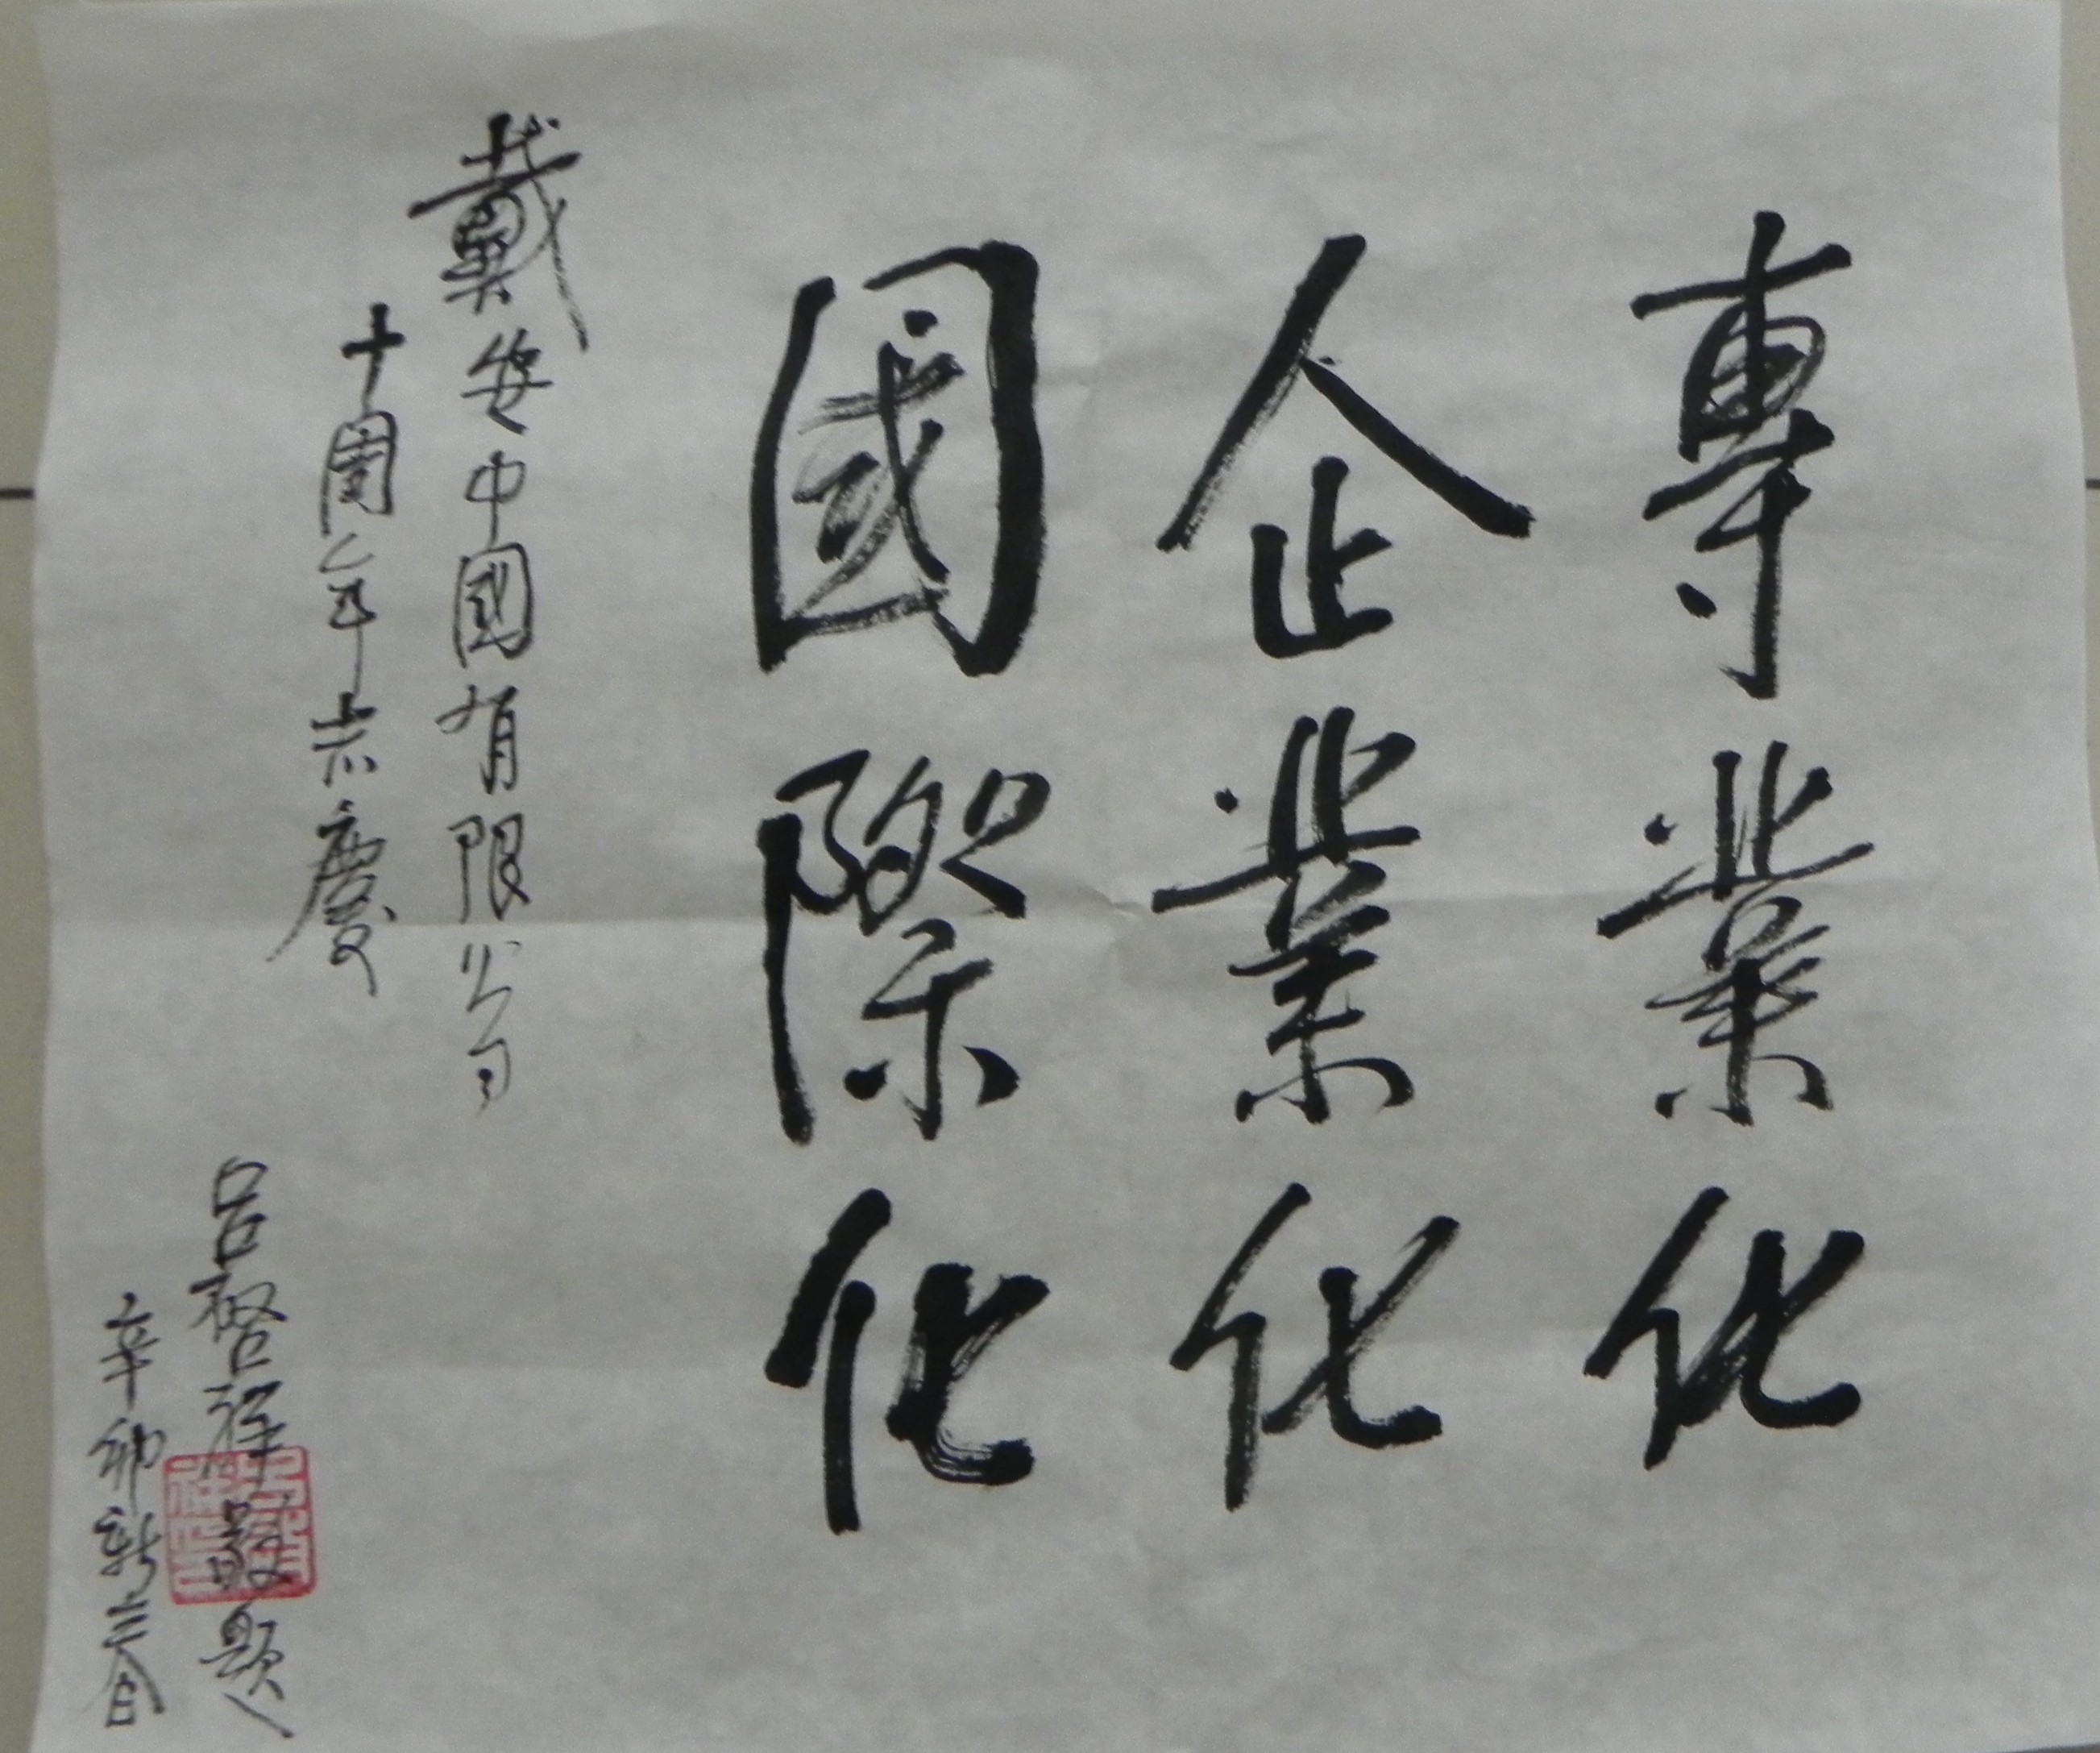 專業化
企業化
國際化
戴安中國有限公司
十周年志慶
呂啓祥敬題
辛卯新春